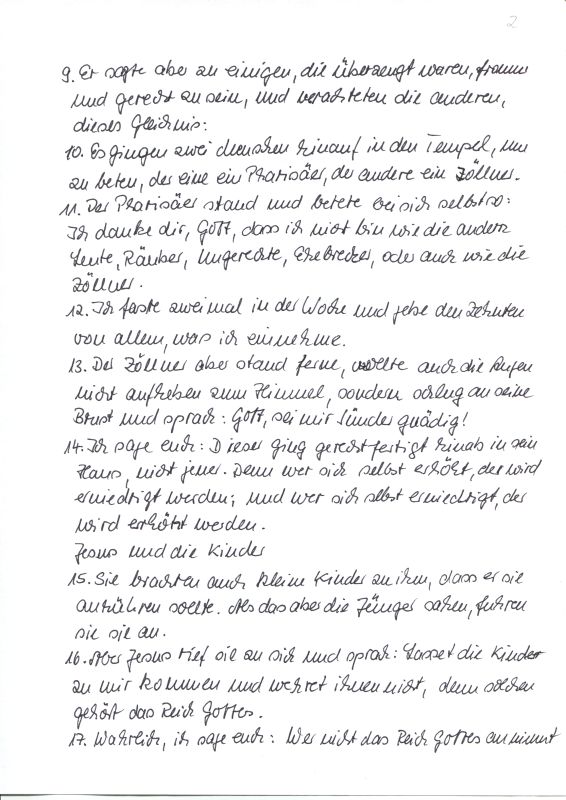 2
9. Er sagte aber zu einigen, die überzeugt waren, fromm
und gerecht zu sein, und verachteten die anderen,
dieses Gleichnis:
10. Es gingen zwei Menschen hinauf in den Tempel, um
zu beten, der eine ein Pharisäer, der andere ein Zöllner.
11. Der Pharisäer stand und betete bei sich selbst so:
Ich danke dir, Gott, dass ich nicht bin wie die andern
Leute, Räuber, Ungerechte, Ehebrecher, oder auch wie die
Zöllner.
12. Ich faste zweimal in der Woche und gebe den Zehnten
von allem, was ich einnehme.
13. Der Zöllner aber stand ferne, wollte auch die Augen
nicht aufheben zum Himmel, sondern schlug an seine
Brust und sprach: Gott, sei mir Sünder gnädig!
14. Ich sage euch: Dieser ging gerechtfertigt hinab in sein
Haus, nicht jener. Denn wer sich selbst erhöht, der wird
erniedrigt werden; und wer sich selbst erniedrigt, der
wird erhöht werden.
Jesus und die Kinder
15. Sie brachten auch kleine Kinder zu ihm, dass er sie
anrühren sollte. Als das aber die Jünger sahen, fuhren
sie sie an.
16. Aber Jesus rief sie zu sich und sprach: Lasset die Kinder
zu mir kommen und wehret ihnen nicht, denn solchen
gehört das Reich Gottes.
17. Wahrlich, ich sage euch: Wer nicht das Reich Gottes annimmt